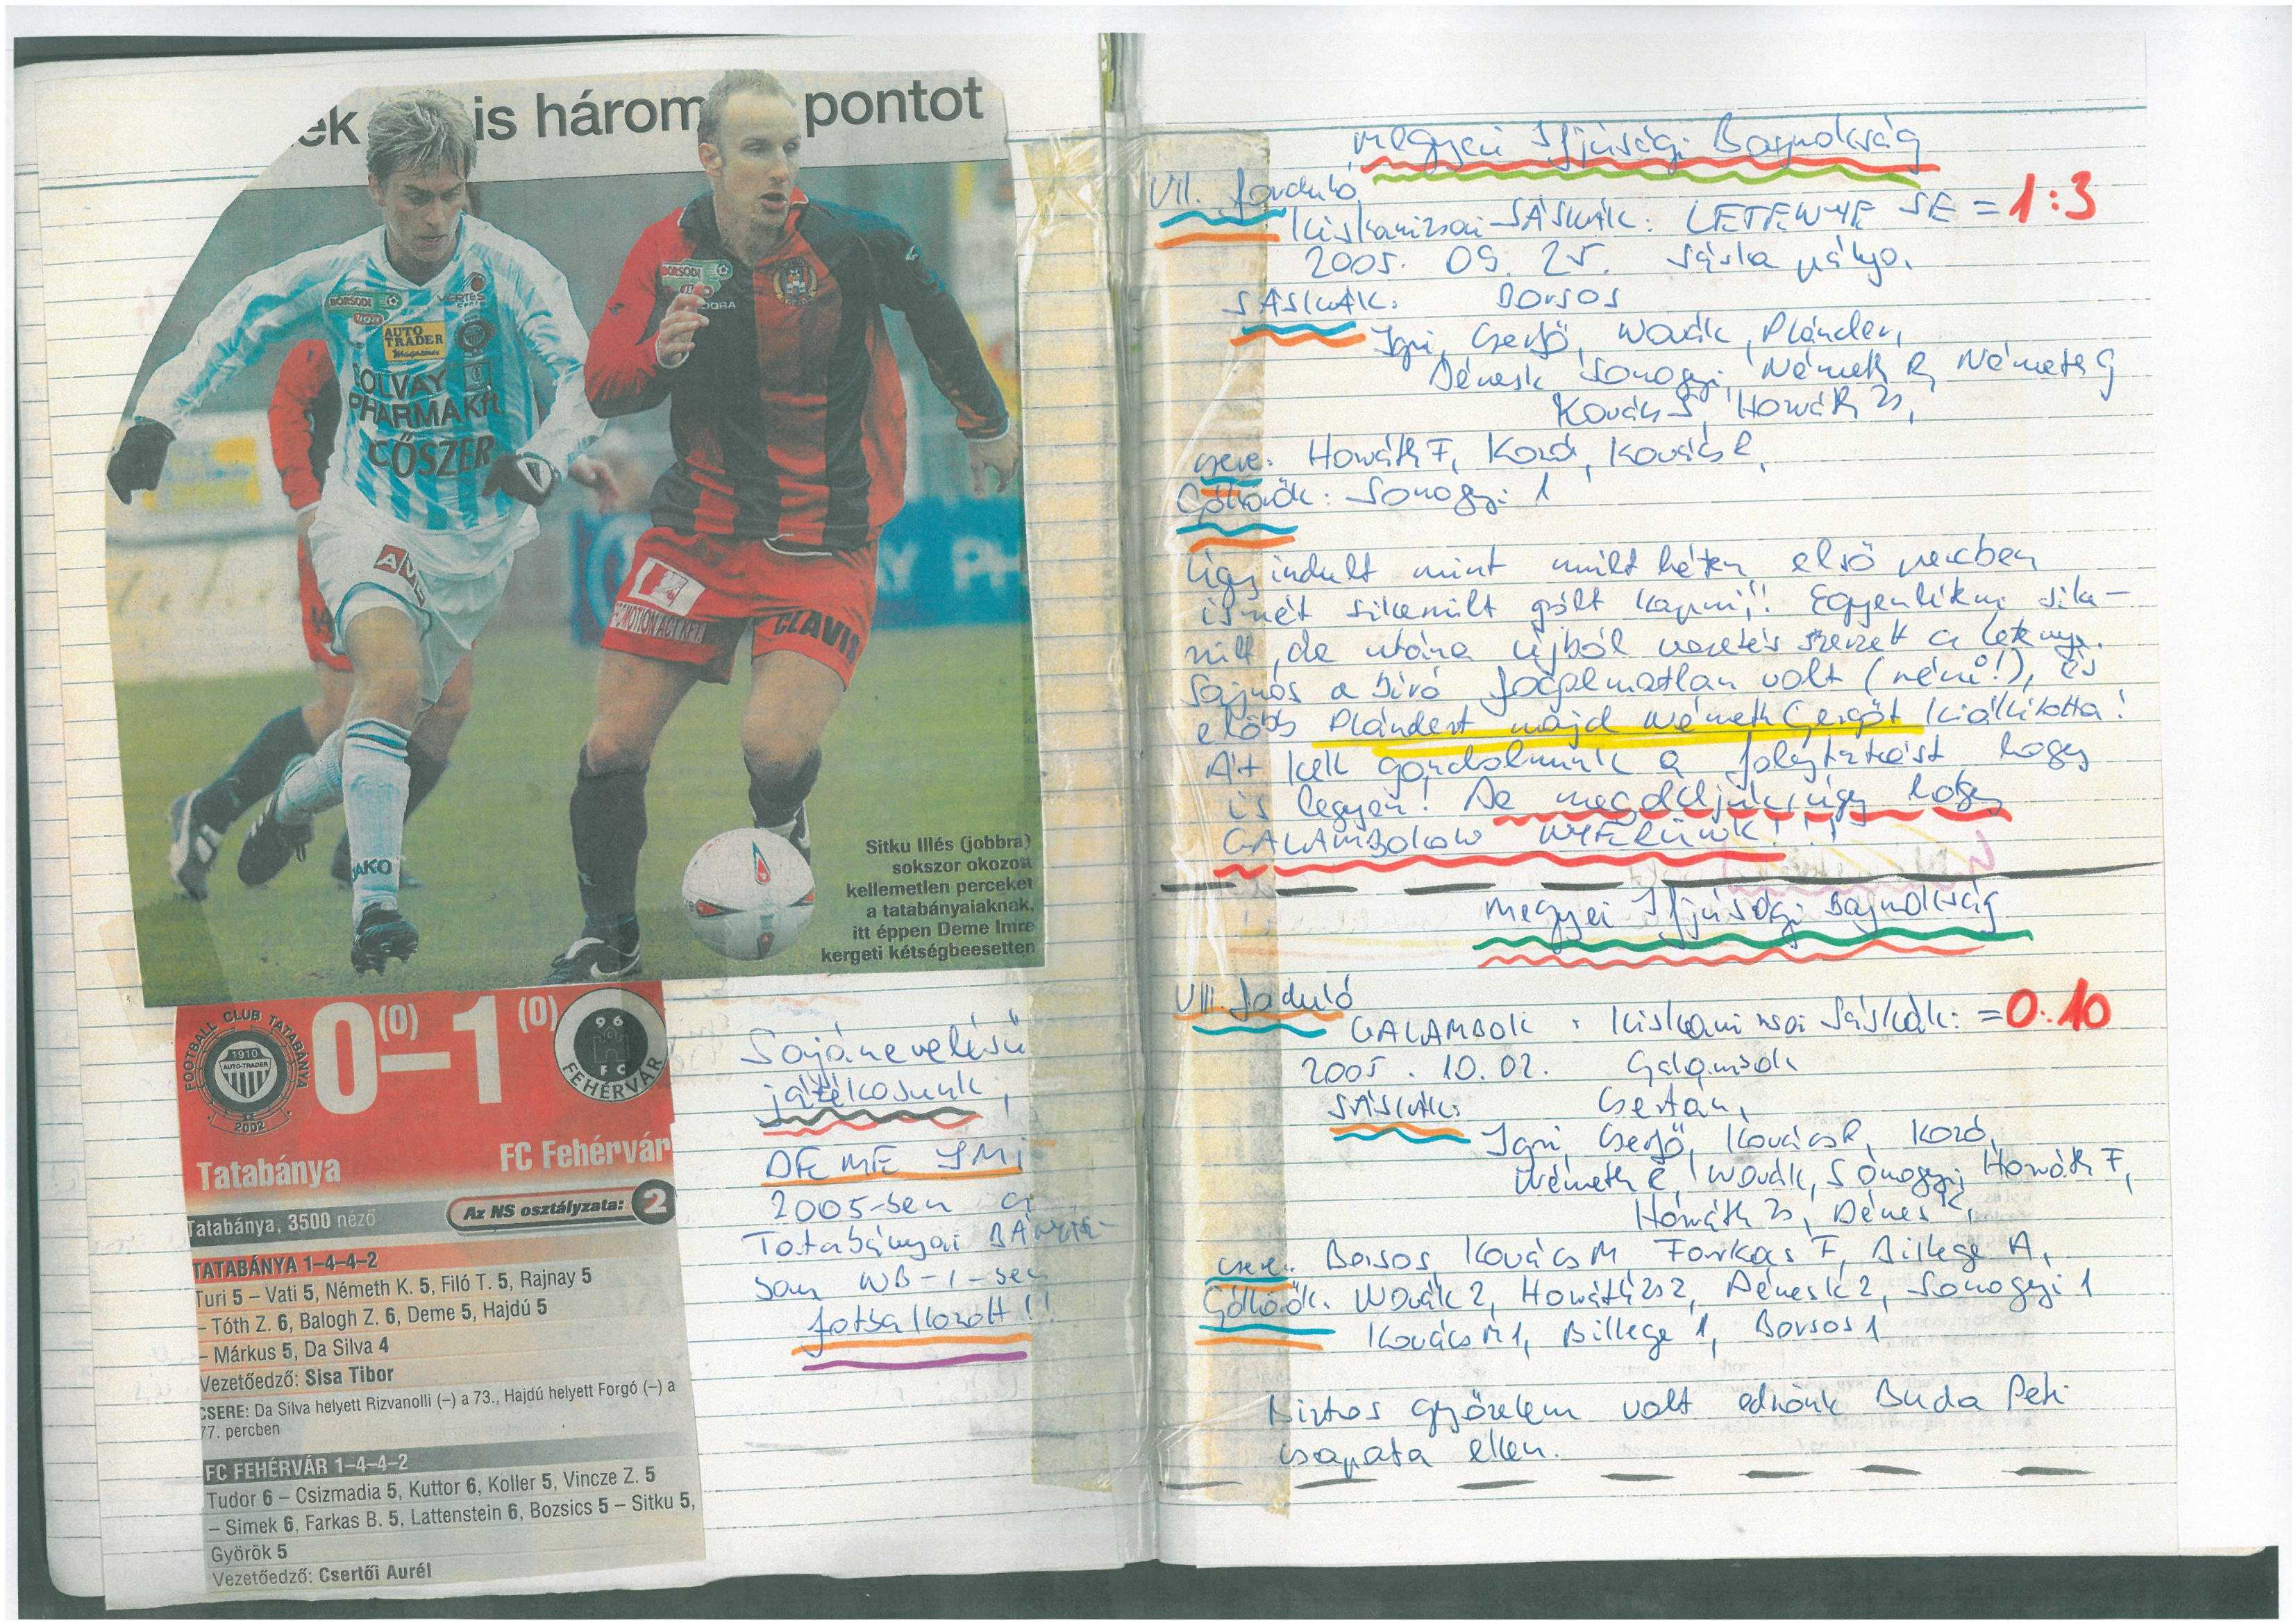 is három pontot
BORSODI
Liga
VÉRTES
AUTO
TRADER
Magazin
SOLVAY
PHARMA Kft.
CŐSZER
JAKO
BORSODI
CLAVIS
Sitku Illés (jobbra)
sokszor okozott
kellemetlen perceket
a tatabányaiaknak,
itt éppen Deme Imre
kergeti kétségbeesetten
0 (0) – 1 (0)
FOOTBALL CLUB TATABÁNYA
1910
AUTO-TRADER
2002
96
FC
FEHÉRVÁR
Tatabánya
FC Fehérvár
Az NS osztályzata: 2
Tatabánya, 3500 néző
TATABÁNYA 1–4–4–2
Turi 5 – Vati 5, Németh K. 5, Filó T. 5, Rajnay 5
– Tóth Z. 6, Balogh Z. 6, Deme 5, Hajdú 5
– Márkus 5, Da Silva 4
Vezetőedző: Sisa Tibor
CSERE: Da Silva helyett Rizvanolli (–) a 73., Hajdú helyett Forgó (–) a
77. percben
FC FEHÉRVÁR 1–4–4–2
Tudor 6 – Csizmadia 5, Kuttor 6, Koller 5, Vincze Z. 5
– Simek 6, Farkas B. 5, Lattenstein 6, Bozsics 5 – Sitku 5,
Györök 5
Vezetőedző: Csertői Aurél
Sajánevelésű
játékosunk,
DEME IMI
2005-ben a
Tatabányai BÁNYÁ-
ban NB-I-ben
fotballozott!!
Megyei Ifjúsági Bajnokság
VII. forduló
Kiskanizsai SÁSKÁK : LETENYE SE = 1:3
2005. 09. 25. Sáska pálya.
SÁSKÁK: Borsos
Igni, Cserfő, Novák, Plánder,
Dénes K Somogyi, Németh R, Németh G
Kovács S, Horváth Zs,
csere: Horváth F, Kozó, Kovács R,
Góllövők: Somogyi 1
Úgy indult mint múlt héten, első percben
ismét sikerült gólt kapni!! Egyenlíteni sike-
rült, de utána újból vezetés szerzett a letenye.
Sajnos a bíró fogalmatlan volt (néni!), és
előbb Plándert majd Németh Gergőt kiállította!
Át kell gondolnunk a folytatást hogy
is legyen! De megoldjuk úgy hogy
GALAMBOKON NYERÜNK!!!
Megyei Ifjúsági Bajnokság
VIII. foduló
GALAMBOK : Kiskanizsai Sáskák: = 0:10
2005. 10. 02. Galambok
SÁSKÁK: Csertán,
Igni, Cserfő, Kovács R, Kozó,
Németh R, Novák, Somogyi, Horváth F,
Horváth Zs, Dénes K,
csere: Borsos, Kovács M, Farkas F, Billege A,
Góllövők: Novák 2, Horváth Zs 2, Dénes K 2, Somogyi 1
Kovács M 1, Billege 1, Borsos 1
Biztos győzelem volt edzőnk Buda Peti
csapata ellen.